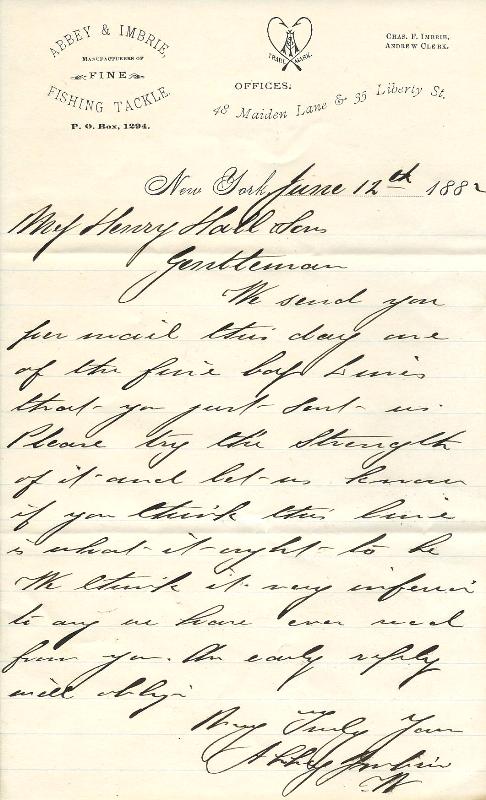 ABBEY & IMBRIE,
MANUFACTURERS OF
FINE
FISHING TACKLE.
P. O. Box, 1294.
TRADE MARK.
CHAS. F. IMBRIE,
ANDREW CLERK.
OFFICES:
48 Maiden Lane & 35 Liberty St.
New York, June 12th 1882
Henry Hall Sons
Gentleman
We send you
per mail this day one
of the fine Lines
that you just sent us.
Please try the Strength
of it and let us know
if you think this line
is what it ought to be
We think it very inferior
to any we have ever recd
from you. An early reply
will oblige
Very Truly Yours
Abbey Imbrie